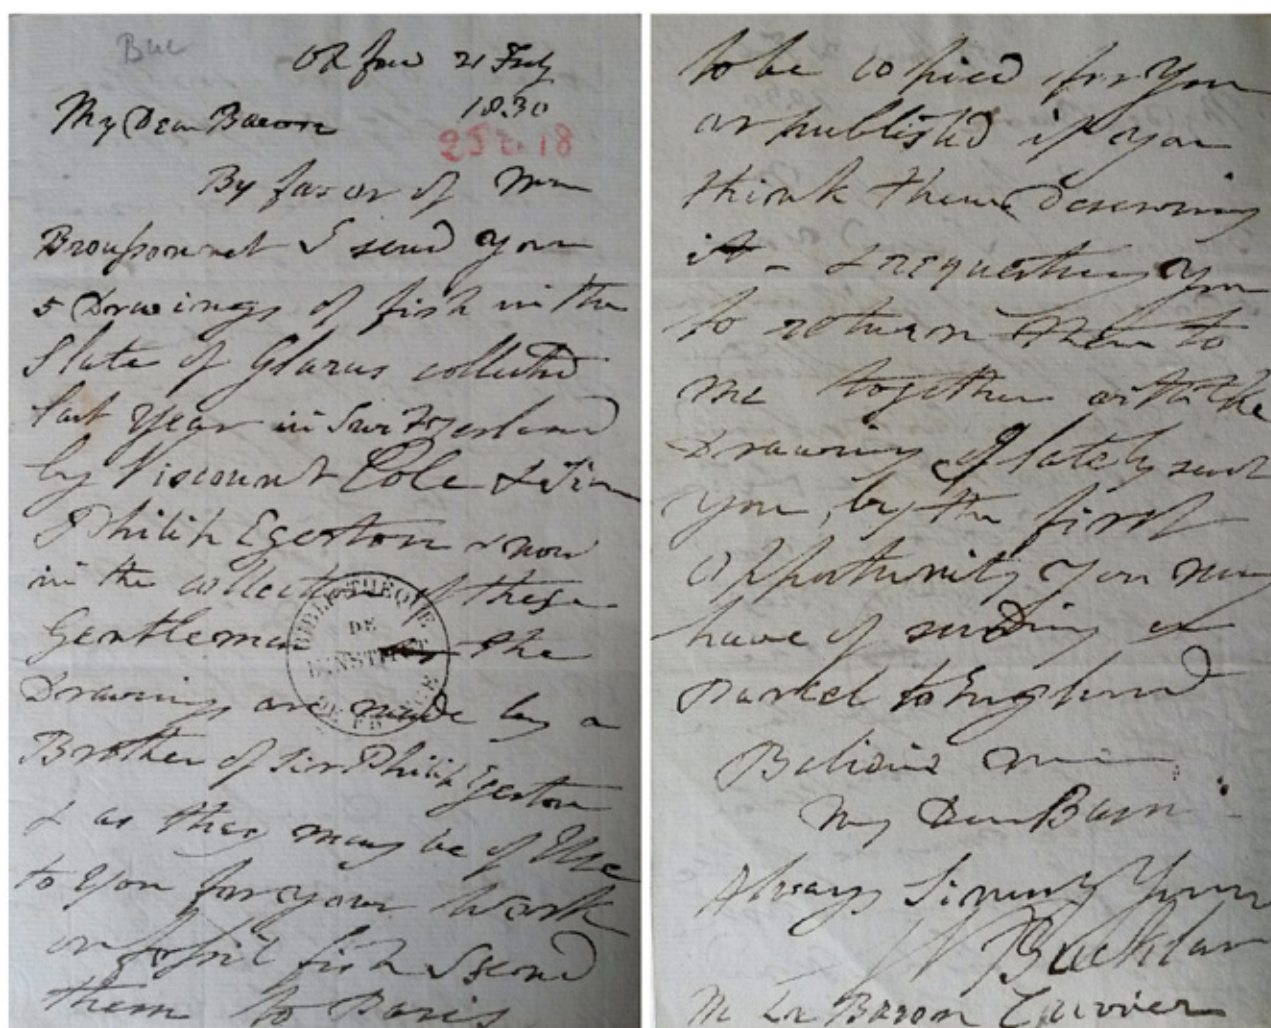 Buc
Oxford 21 Feby
1830
My Dear Baron
258. 18
By favor of Mr
Broussonnet I send you
5 Drawings of fish in the
Slate of Glarus collected
last year in Switzerland
by Viscount Cole & Sir
Philip Egerton & now
in the collection of these
Gentleman the
Drawings are made by a
Brother of Sir Philip Egerton
& as they may be of Use
to you for your Work
on fossil fish I send
them to Paris
BIBLIOTHEQUE
DE
L'INSTITUT
DE FRANCE
to be copied for you
or published if you
think them Deserving
it - & requesting you
to return them to
me together with the
Drawing I lately sent
you, by the first
opportunity you may
have of sending a
parcel to England
Believe me
My Dear Baron
Always Sincerely Yours
W Buckland
M Le Baron Cuvier